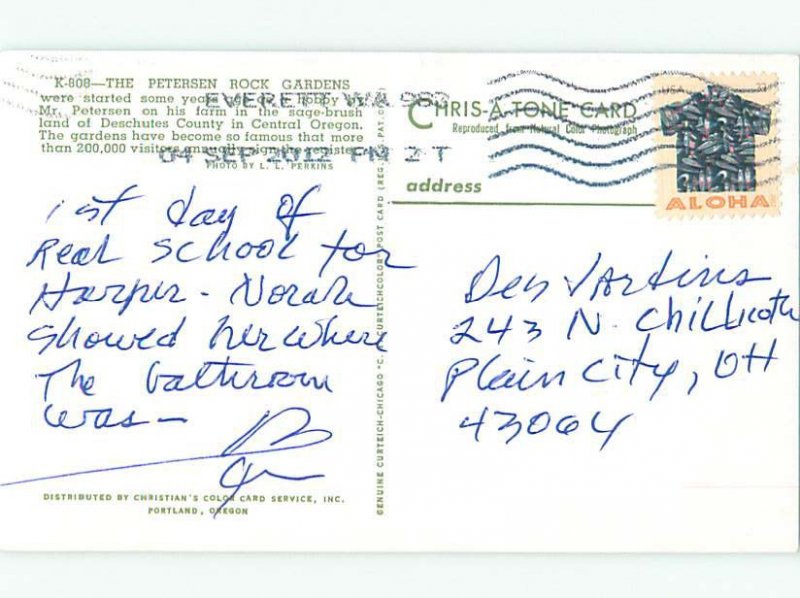 K-808—THE PETERSEN ROCK GARDENS
were started some years ago as a hobby by
Mr. Petersen on his farm in the sage-brush
land of Deschutes County in Central Oregon.
The gardens have become so famous that more
than 200,000 visitors annually sign the register.
PHOTO BY L. L. PERKINS
EVERETT WA 982
04 SEP 2012 PM 2 T
1st day of
Real School for
Harper - Norah
Showed her where
The bathroom
was —
DISTRIBUTED BY CHRISTIAN'S COLOR CARD SERVICE, INC.
PORTLAND, OREGON
GENUINE CURTEICH-CHICAGO "C. T. CURTEICHCOLOR" POST CARD (REG. U.S. PAT. OFF.)
CHRIS-A-TONE CARD
Reproduced from Natural Color Photograph
address
USA
ALOHA
243 N. Chillicothe
Plain City, OH
43064